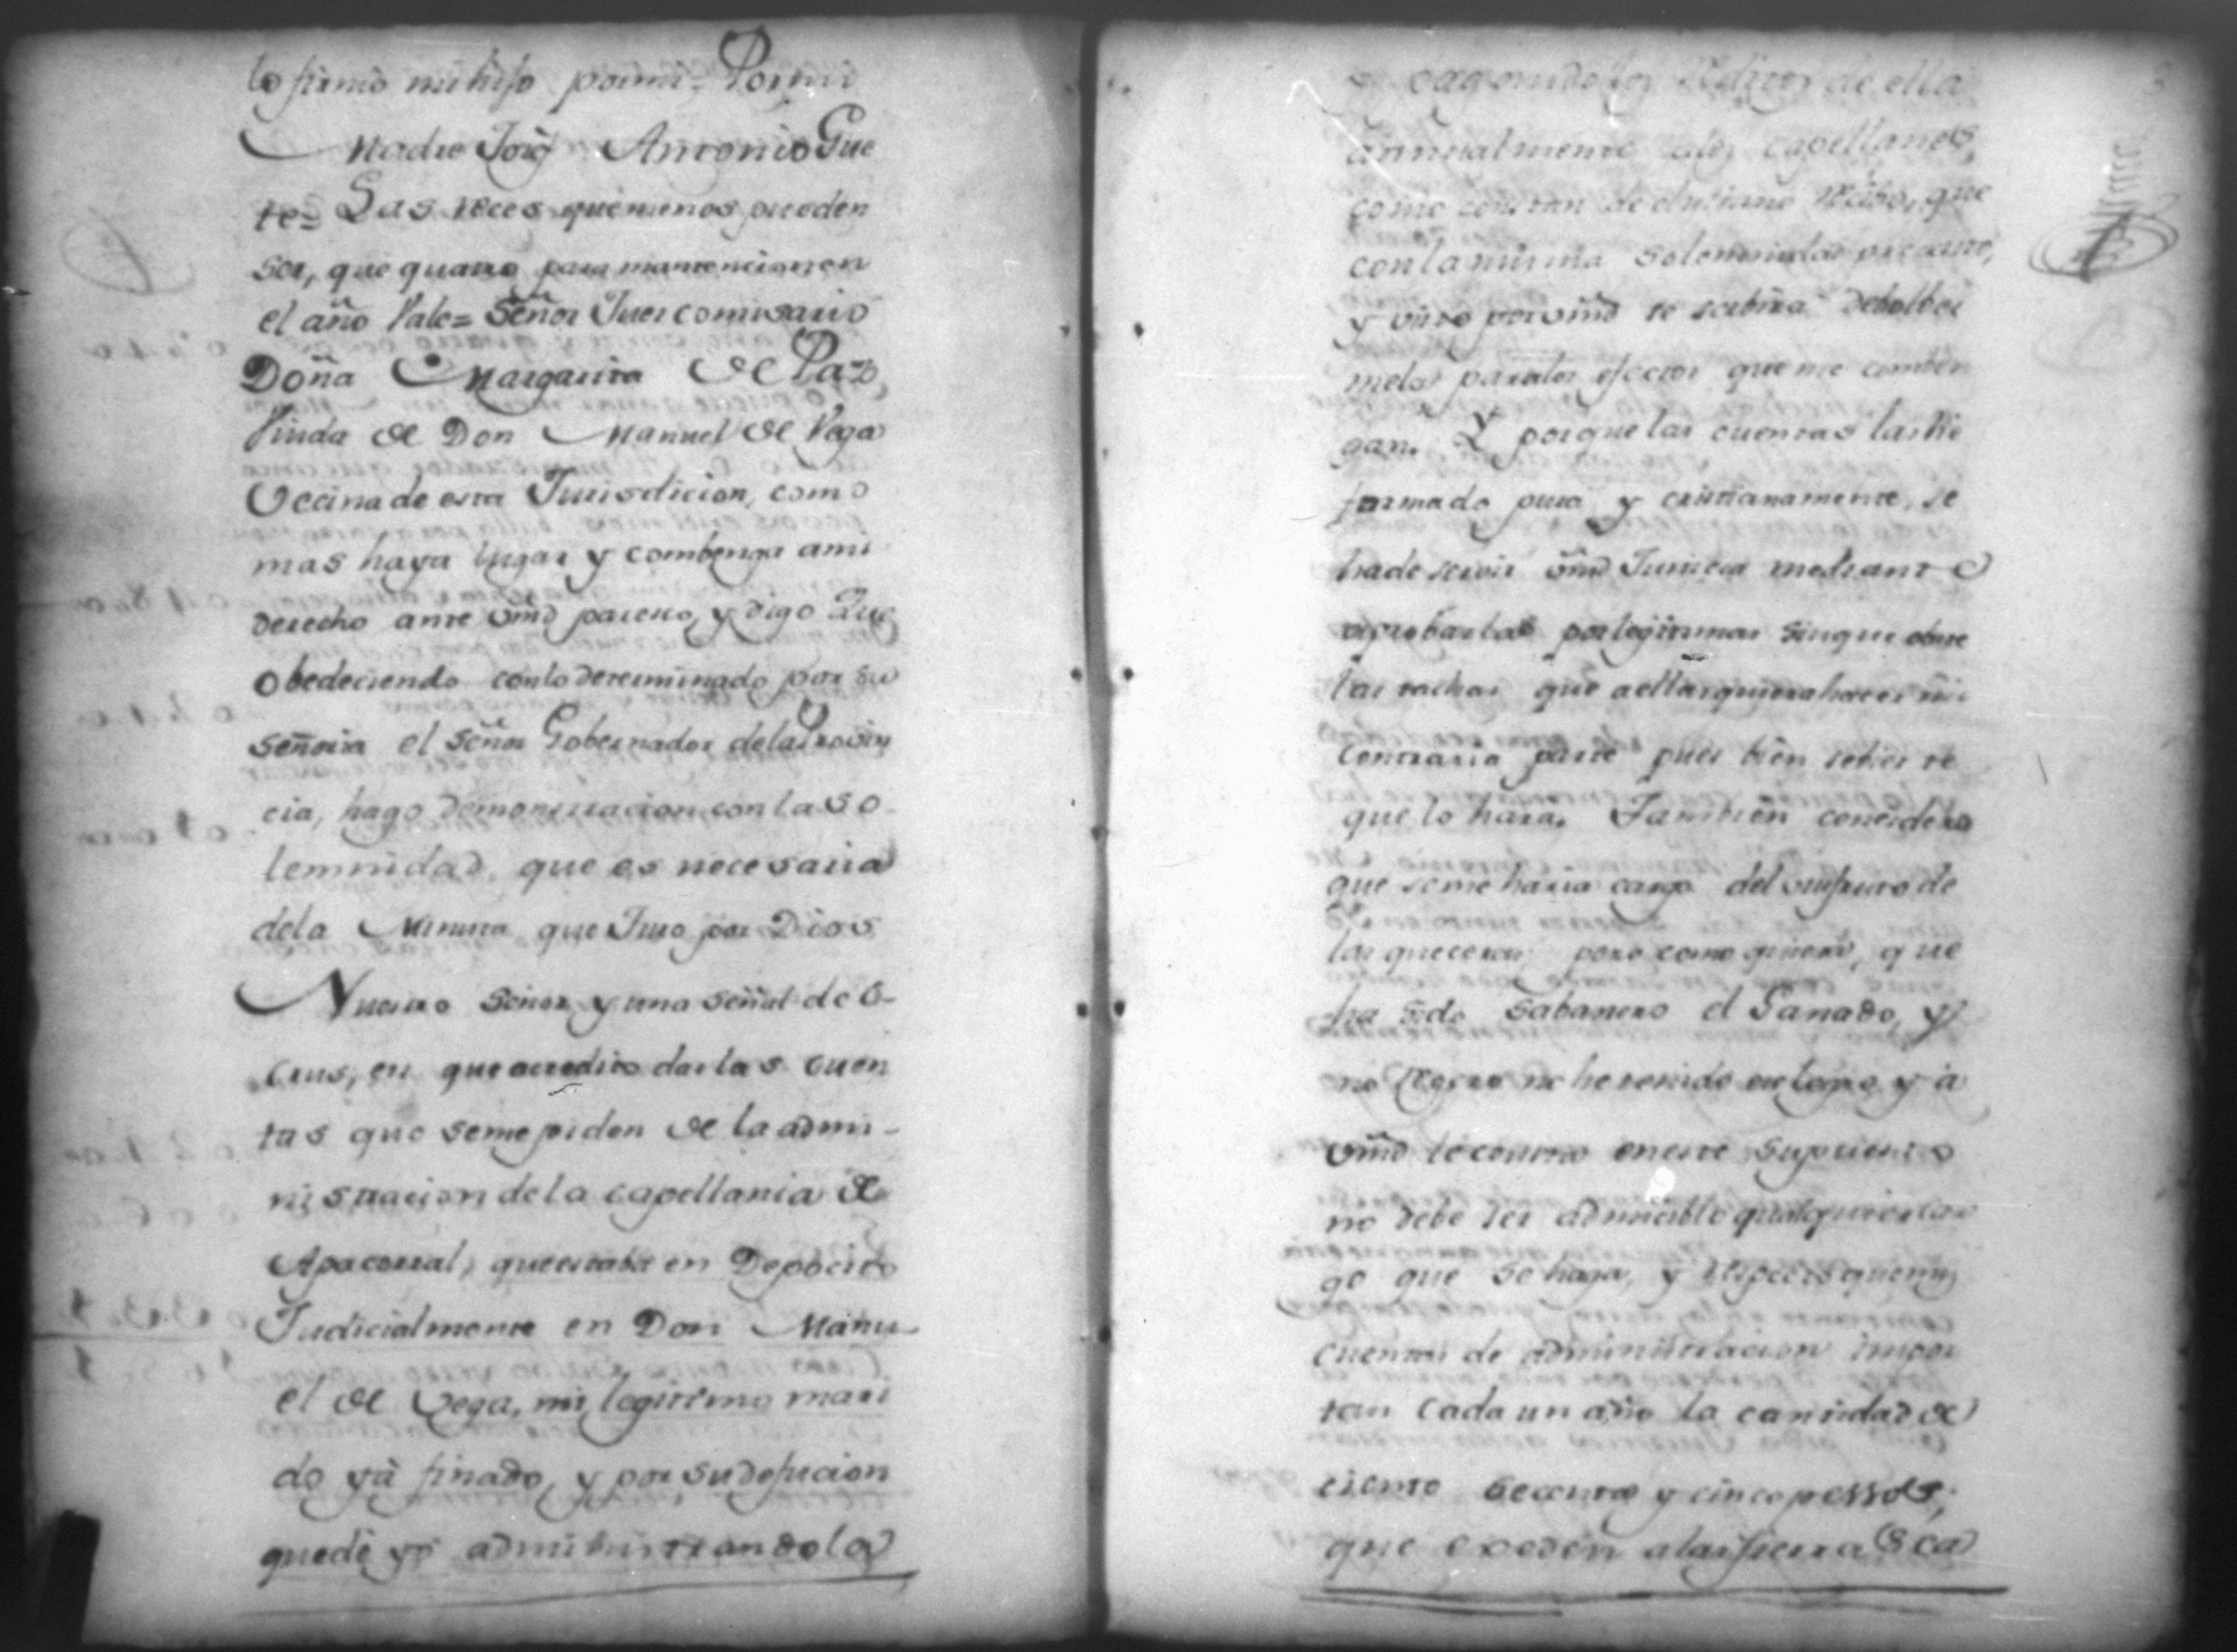 lo firmo mi hijo por mi = Por mi
Madre José Antonio Gue
te = Las reces que menos pueden
ser, que quatro para mantencion en
el año Vale = Señor Juez comisario
Doña Margarita de Paz,
Viuda de Don Manuel de Vega
Vecina de esta Jurisdicion, como
mas haya lugar y combenga ami
derecho ante vmd paresco, y digo Que
obedeciendo con lo determinado por su
señoria el señor Gobernador de la Provin
cia, hago demonstracion con la so
lemnidad que es necesaria
de la que Juro por Dios
Nuestro Señor y una señal de
Crus, en que acredito dar las cuen
tas que seme piden de la admi-
nistracion de la capellania de
Apacorral, que estaba en Depocito
Judicialmente en Don Manu-
el de Vega, mi legitimo mari
do yá finado, y por su defucion
quedé yo administrandola
pagando los reditos de ella
annualmente alos capellanes,
como constan de recibo, que
con la misma solemnidad presento,
y visto por vmd se serbira debolber
melos para los efectos que me comben
gan. Y porque las cuentas las he
formado pura y cristianamente, se
ha de servir vmd Justicia mediante
aprobarlas por legitimas sin que obste
las tachas que aellas quiera hacer mi
Contraria parte pues bien sé
que lo hara. Tambien concidero
que seme haria cargo del usufruto de
las que pero como quiera, que
ha sido sabanero el Ganado, y
no no he tenido en y á
vmd le consta en este supuesto
no debe ser admicible qualquier car
go que se haga, y respecto que mis
cuentas de administracion impor
tan cada un año la cantidad de
ciento secenta y cinco pessos,
que exeden alas